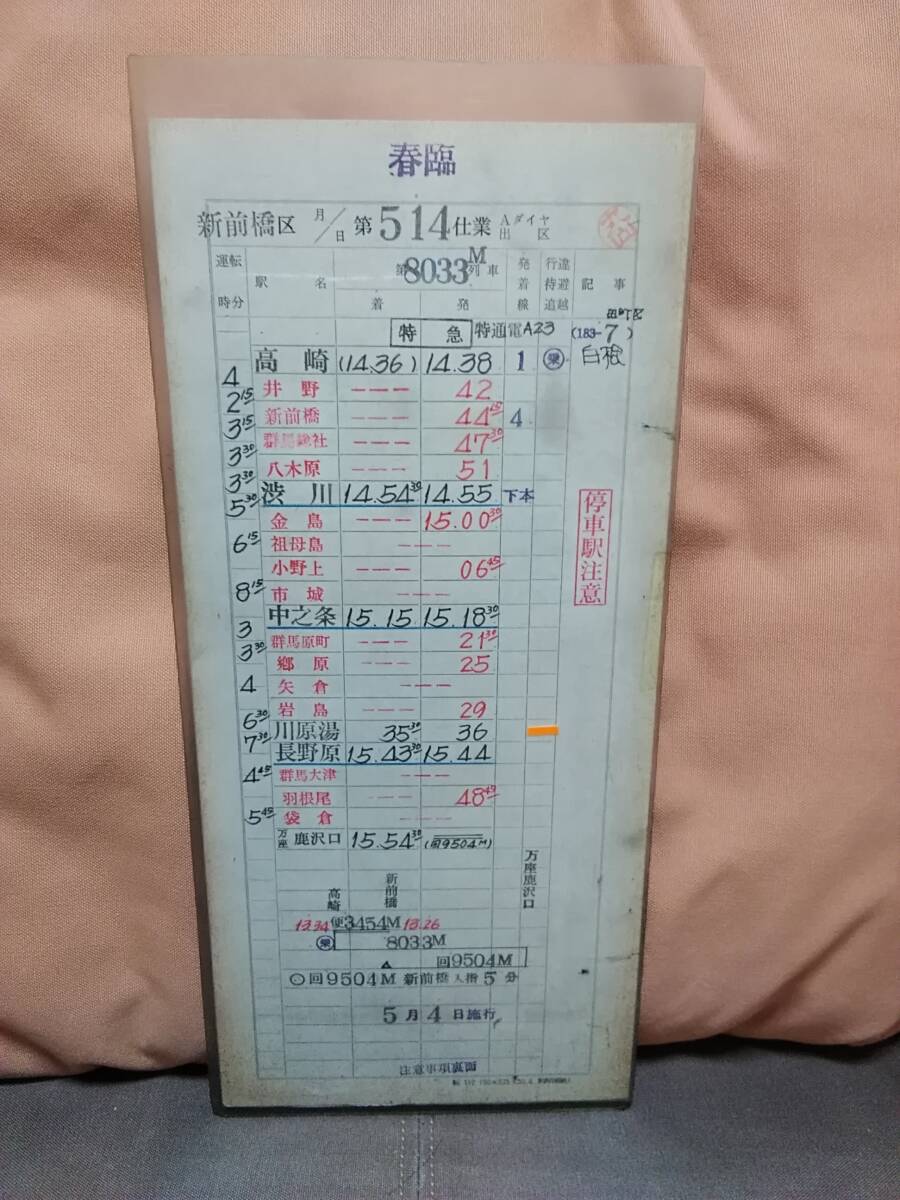 春臨
新前橋区 月/日 第514仕業 Aダイヤ出区
運転時分 駅名 第8033M列車 着 発 発着線 行違待避追越 記事
特急 特通電A23 (183-7) 田町区
高崎 (14.36) 14.38 1 乗 白根
4
井野 --- 42
2 15
新前橋 --- 44 15 4
3 15
群馬総社 --- 47 30
3 30
八木原 --- 51
3 30
渋川 14.54 30 14.55 下本
5 30
金島 --- 15.00 30
祖母島 ---
6 15
小野上 --- 06 45
市城 ---
8 15
中之条 15.15 15.18 30
3
群馬原町 --- 21 30
3 30
郷原 --- 25
矢倉 ---
4
岩島 --- 29
6 30
川原湯 35 30 36
7 30
長野原 15.43 30 15.44
群馬大津 ---
4 45
羽根尾 --- 48 45
袋倉 ---
5 45
万座鹿沢口 15.54 30 (回9504M)
停車駅注意
高崎 新前橋 万座鹿沢口
13.34 便3454M 13.26
乗 8033M
回9504M
回9504M 新前橋入指5分
5月4日施行
注意事項裏面